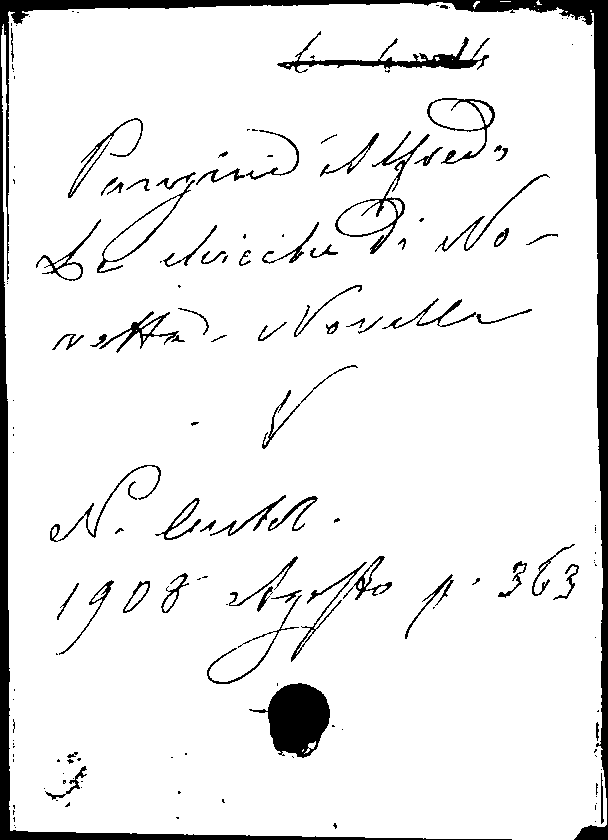 Panzini Alfredo
Le chicche di No-
retta - Novella
V
N. Antol.
1908 Agosto p. 363